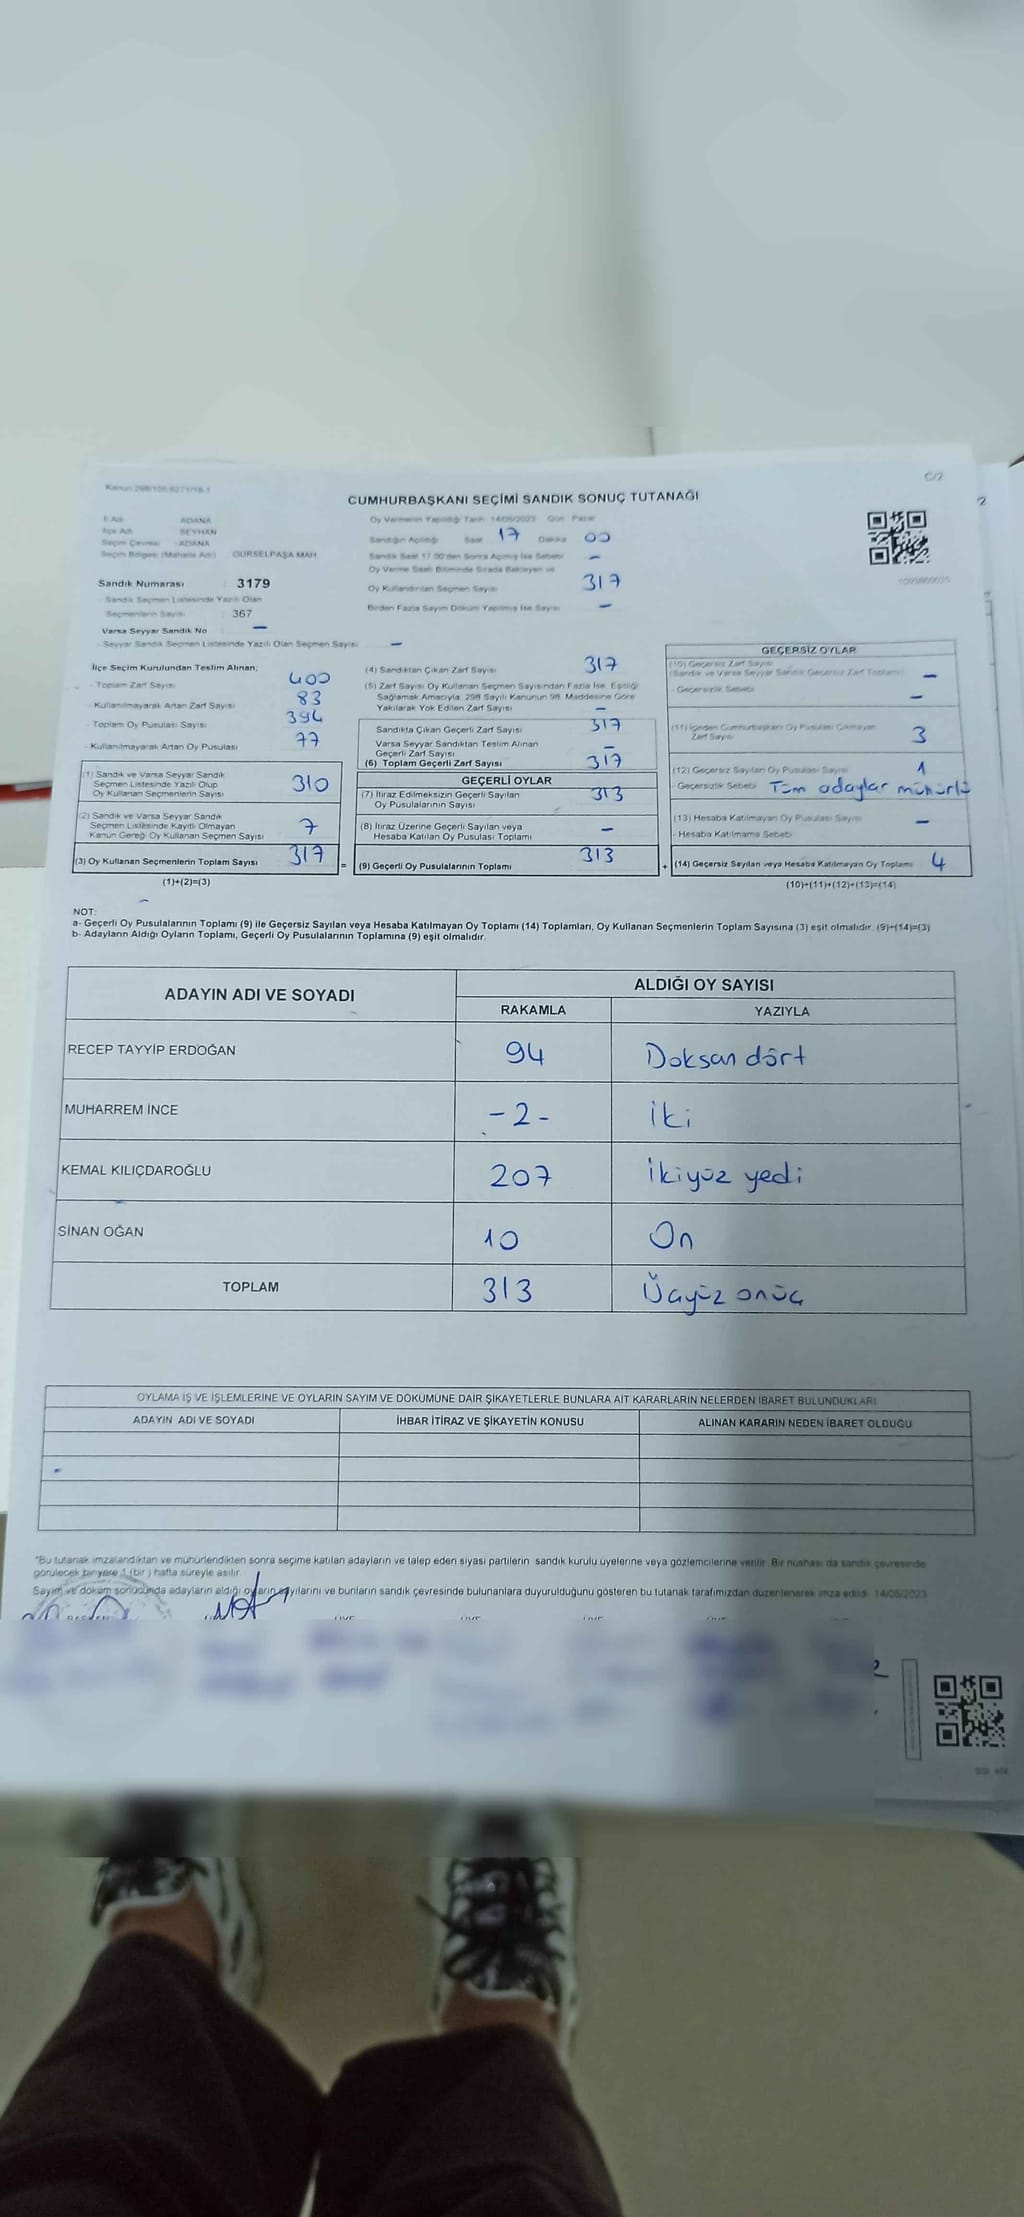 C/2
Kanun 298/105/6271/16-1
CUMHURBAŞKANI SEÇİMİ SANDIK SONUÇ TUTANAĞI
İl Adı ADANA
İlçe Adı SEYHAN
Seçim Çevresi ADANA
Seçim Bölgesi (Mahalle Adı) GÜRSELPAŞA MAH
Sandık Numarası : 3179
Sandık Seçmen Listesinde Yazılı Olan
Seçmenlerin Sayısı : 367
Varsa Seyyar Sandık No –
- Seyyar Sandık Seçmen Listesinde Yazılı Olan Seçmen Sayısı –
Oy Vermenin Yapıldığı Tarih 14/05/2023 Gün Pazar
Sandığın Açıldığı Saat 17 Dakika 00
Sandık Saat 17.00'den Sonra Açılmış İse Sebebi –
Oy Verme Saati Bitiminde Sırada Bekleyen ve
Oy Kullandırılan Seçmen Sayısı 317
Birden Fazla Sayım Döküm Yapılmış İse Sayısı –
İlçe Seçim Kurulundan Teslim Alınan;
- Toplam Zarf Sayısı 400
- Kullanılmayarak Artan Zarf Sayısı 83
- Toplam Oy Pusulası Sayısı 394
- Kullanılmayarak Artan Oy Pusulası 77
(1) Sandık ve Varsa Seyyar Sandık
Seçmen Listesinde Yazılı Olup
Oy Kullanan Seçmenlerin Sayısı 310
(2) Sandık ve Varsa Seyyar Sandık
Seçmen Listesinde Kayıtlı Olmayan
Kanun Gereği Oy Kullanan Seçmen Sayısı 7
(3) Oy Kullanan Seçmenlerin Toplam Sayısı 317
(1)+(2)=(3)
=
(4) Sandıktan Çıkan Zarf Sayısı 317
(5) Zarf Sayısı Oy Kullanan Seçmen Sayısından Fazla İse, Eşitliği
Sağlamak Amacıyla, 298 Sayılı Kanunun 98. Maddesine Göre
Yakılarak Yok Edilen Zarf Sayısı –
Sandıkta Çıkan Geçerli Zarf Sayısı 317
Varsa Seyyar Sandıktan Teslim Alınan
Geçerli Zarf Sayısı –
(6) Toplam Geçerli Zarf Sayısı 317
GEÇERLİ OYLAR
(7) İtiraz Edilmeksizin Geçerli Sayılan
Oy Pusulalarının Sayısı 313
(8) İtiraz Üzerine Geçerli Sayılan veya
Hesaba Katılan Oy Pusulası Toplamı –
(9) Geçerli Oy Pusulalarının Toplamı 313
+
GEÇERSİZ OYLAR
(10) Geçersiz Zarf Sayısı
(Sandık ve Varsa Seyyar Sandık Geçersiz Zarf Toplamı) –
- Geçersizlik Sebebi –
(11) İçinden Cumhurbaşkanı Oy Pusulası Çıkmayan
Zarf Sayısı 3
(12) Geçersiz Sayılan Oy Pusulası Sayısı 1
- Geçersizlik Sebebi Tüm adaylar mühürlü
(13) Hesaba Katılmayan Oy Pusulası Sayısı –
- Hesaba Katılmama Sebebi
(14) Geçersiz Sayılan veya Hesaba Katılmayan Oy Toplamı 4
(10)+(11)+(12)+(13)=(14)
NOT:
a- Geçerli Oy Pusulalarının Toplamı (9) ile Geçersiz Sayılan veya Hesaba Katılmayan Oy Toplamı (14) Toplamları, Oy Kullanan Seçmenlerin Toplam Sayısına (3) eşit olmalıdır. (9)+(14)=(3)
b- Adayların Aldığı Oyların Toplamı, Geçerli Oy Pusulalarının Toplamına (9) eşit olmalıdır.
ADAYIN ADI VE SOYADI
ALDIĞI OY SAYISI
RAKAMLA YAZIYLA
RECEP TAYYİP ERDOĞAN 94 Doksan dört
MUHARREM İNCE -2- iki
KEMAL KILIÇDAROĞLU 207 ikiyüz yedi
SİNAN OĞAN 10 On
TOPLAM 313 Üçyüz onüç
OYLAMA İŞ VE İŞLEMLERİNE VE OYLARIN SAYIM VE DÖKÜMÜNE DAİR ŞİKAYETLERLE BUNLARA AİT KARARLARIN NELERDEN İBARET BULUNDUKLARI
ADAYIN ADI VE SOYADI İHBAR İTİRAZ VE ŞİKAYETİN KONUSU ALINAN KARARIN NEDEN İBARET OLDUĞU
*Bu tutanak imzalandıktan ve mühürlendikten sonra seçime katılan adayların ve talep eden siyasi partilerin sandık kurulu üyelerine veya gözlemcilerine verilir. Bir nüshası da sandık çevresinde
görülecek bir yere 1 (bir) hafta süreyle asılır.
Sayım ve döküm sonucunda adayların aldığı oyların sayılarını ve bunların sandık çevresinde bulunanlara duyurulduğunu gösteren bu tutanak tarafımızdan düzenlenerek imza edildi. 14/05/2023